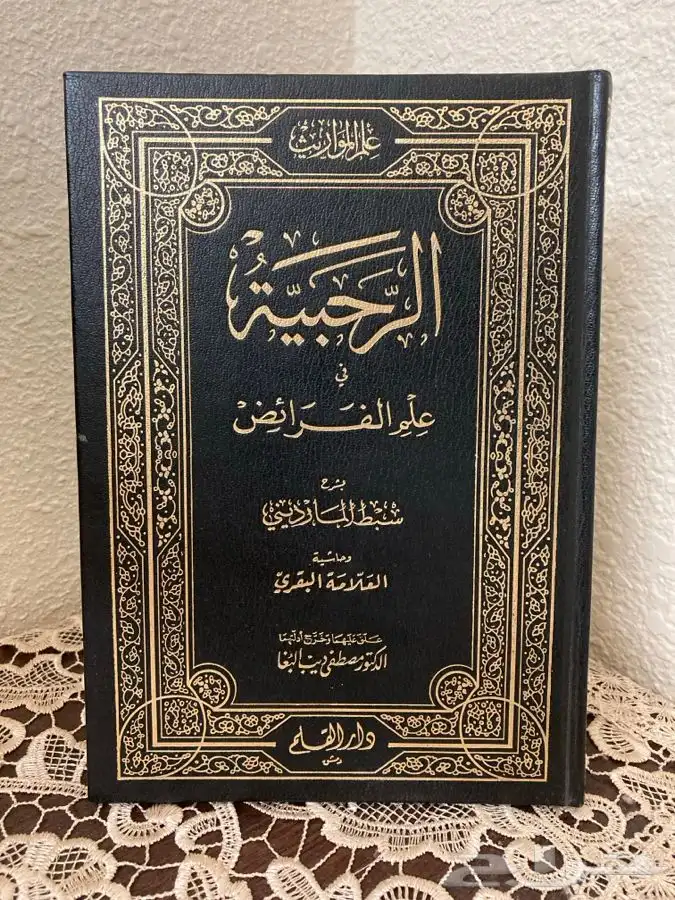 علم المواريث
الرَّحَبِيَّةُ
في
عِلْمِ الفَرَائِضْ
بشرح
سبط المارديني
وحاشية
العلّامة البقريّ
علّق عليها وخرّج أدلّتها
الدكتور مصطفى ديب البُغا
دار القلم
دمشق
حراج